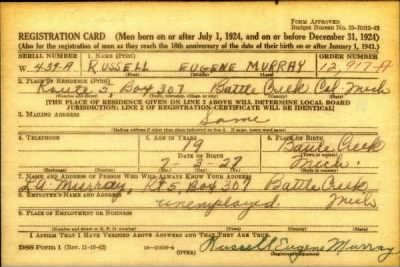 FORM APPROVED
Budget Bureau No. 33-R012-42
REGISTRATION CARD (Men born on or after July 1, 1924, and on or before December 31, 1924)
(Also for the registration of men as they reach the 18th anniversary of the date of their birth on or after January 1, 1943.)
SERIAL NUMBER 1. NAME (Print) ORDER NUMBER
W 438-A RUSSELL EUGENE MURRAY 12,917-A
2. PLACE OF RESIDENCE (Print)
Route 5, Box 307 Battle Creek Cal. Mich
[THE PLACE OF RESIDENCE GIVEN ON LINE 2 ABOVE WILL DETERMINE LOCAL BOARD
JURISDICTION; LINE 2 OF REGISTRATION CERTIFICATE WILL BE IDENTICAL]
3. MAILING ADDRESS
Same
4. TELEPHONE 5. AGE IN YEARS 6. PLACE OF BIRTH
19 Battle Creek
DATE OF BIRTH
7-3-27 Mich.
7. NAME AND ADDRESS OF PERSON WHO WILL ALWAYS KNOW YOUR ADDRESS
Murray, Rt 5, Box 307 Battle Creek
8. EMPLOYER'S NAME AND ADDRESS
unemployed. Mich
9. PLACE OF EMPLOYMENT OR BUSINESS
I AFFIRM THAT I HAVE VERIFIED ABOVE ANSWERS AND THAT THEY ARE TRUE.
DSS Form 1 (Rev. 11-16-42) (OVER) Russell Eugene Murray